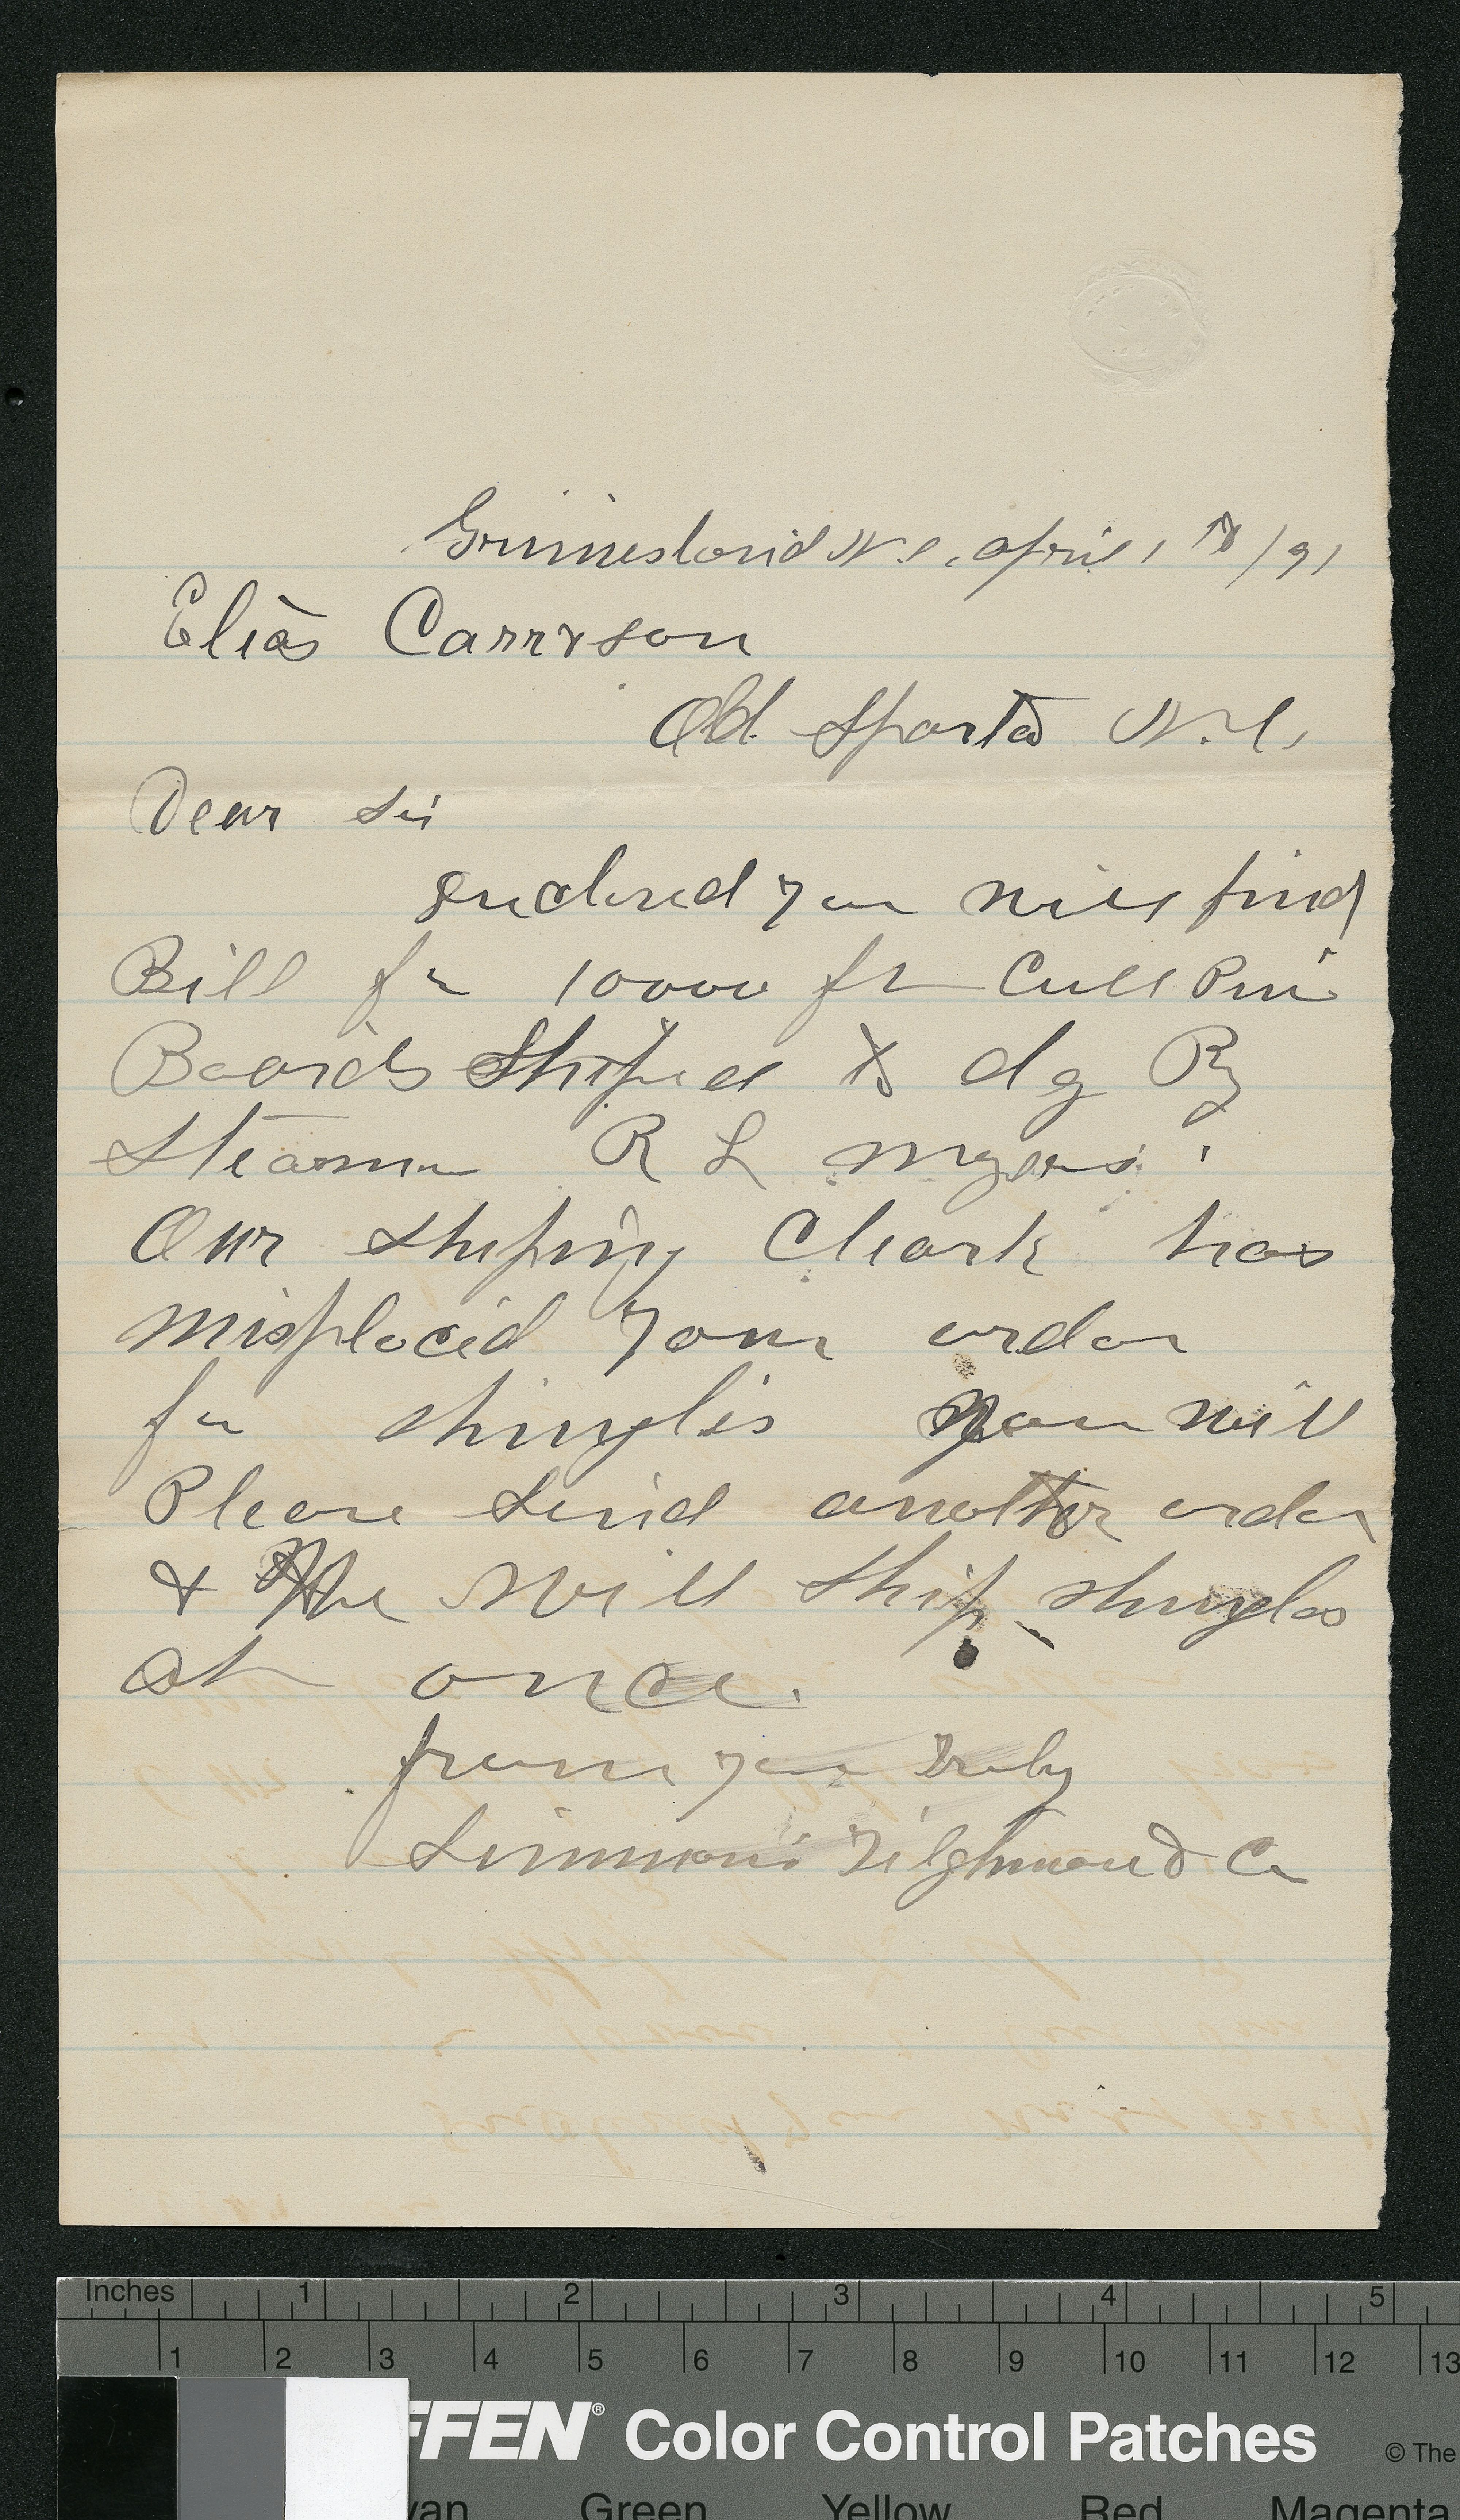 Grimesland N.C. April 18/91
Elias Carr & son
Old Sparta N.C.
Dear Sir
Enclosed you will find
Bill for 10000 ft Cull Pine
Boards Shiped to dg By
Steamer R L Myers.
Our Shiping Cleark has
misplaced your order
for shingles you will
Please Send another order
& We Will Ship shingles
at once.
from your Truly
Simmons Tilghman & Co
Inches 1 2 3 4 5
1 2 3 4 5 6 7 8 9 10 11 12 13
FFEN® Color Control Patches © The
yan Green Yellow Red Magenta